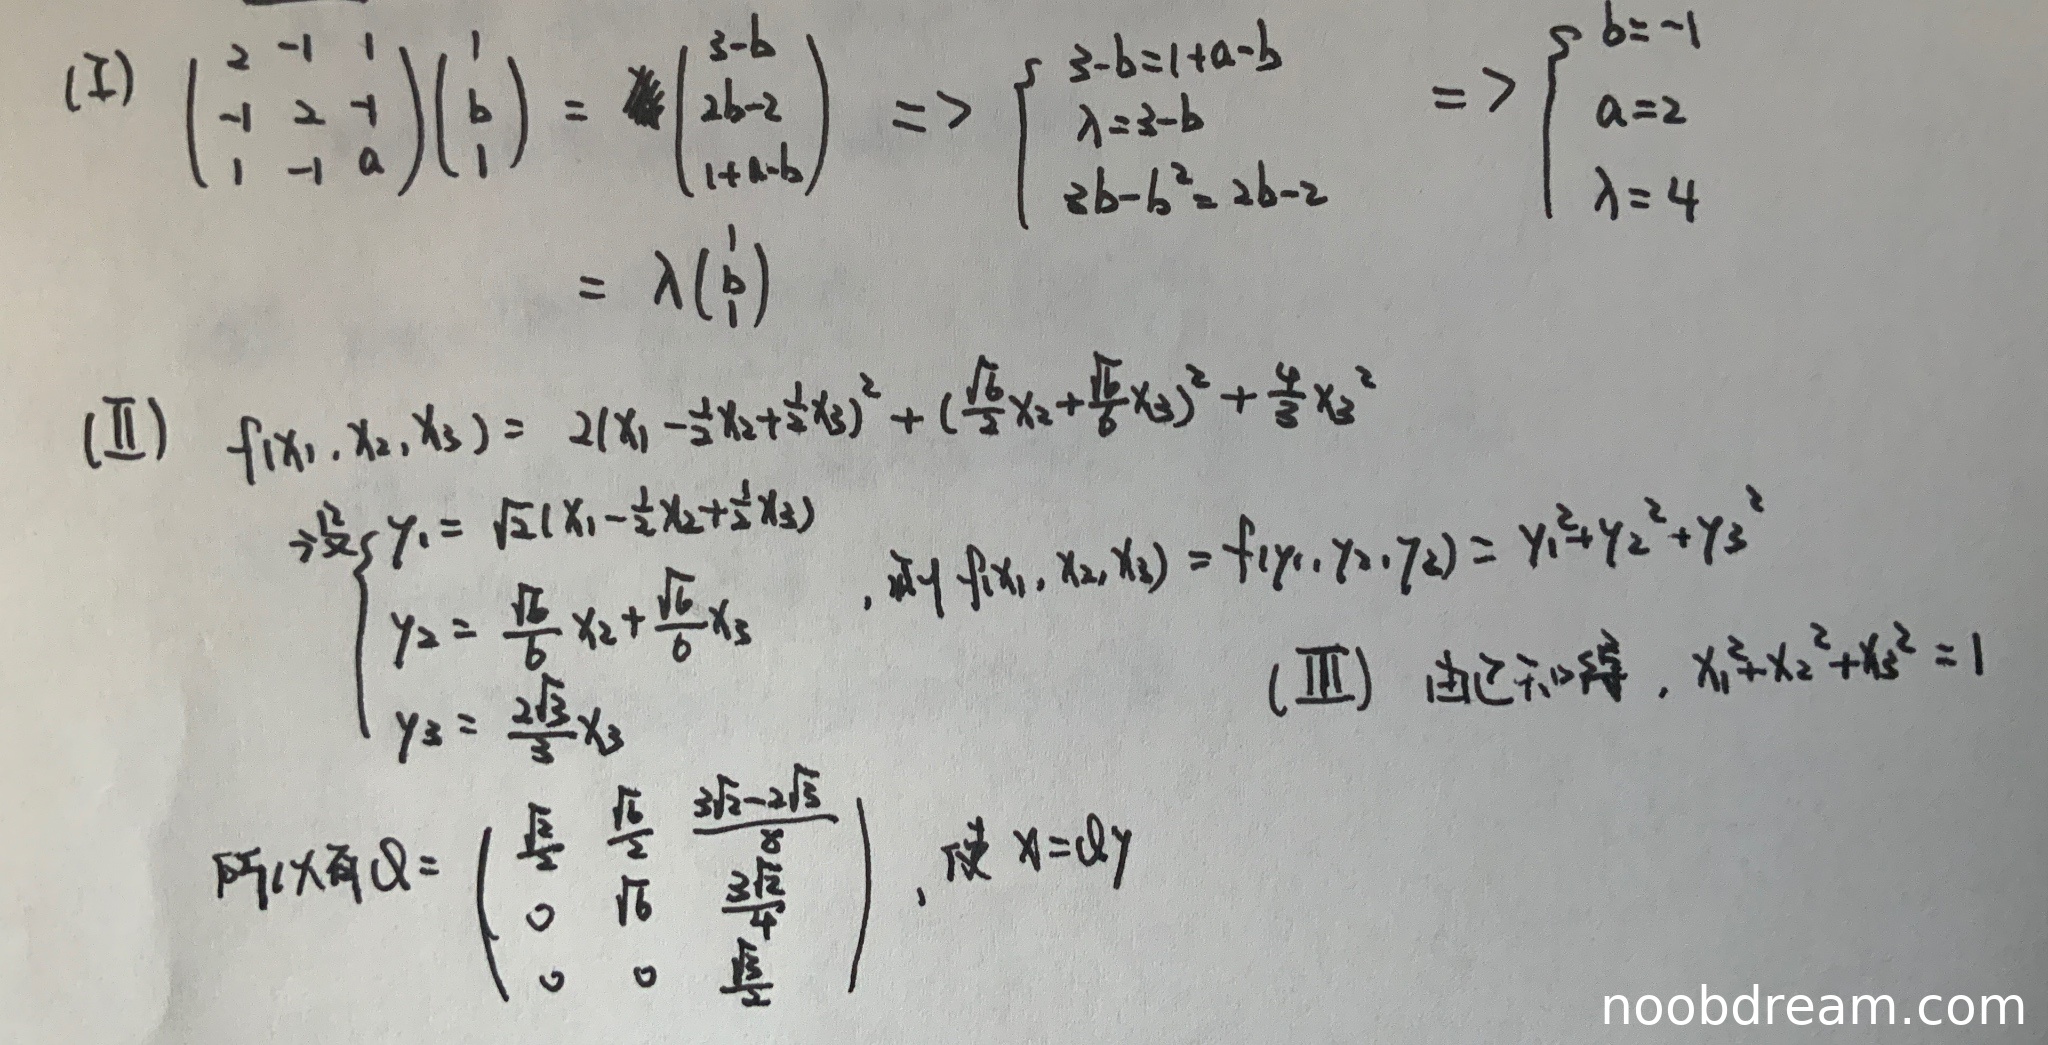 (I) ( 2 -1 1 ; -1 2 -1 ; 1 -1 a ) ( 1 ; b ; 1 ) = ( 3-b ; 2b-2 ; 1+a-b ) => { 3-b=1+a-b ; λ=3-b ; 3b-b²=2b-2 => { b=-1 ; a=2 ; λ=4
= λ( 1 ; b ; 1 )
(II) f(x₁,x₂,x₃)= 2(x₁-½x₂+½x₃)²+(√6/2 x₂+√6/6 x₃)²+4/3 x₃²
设{ y₁=√2(x₁-½x₂+½x₃)
y₂=√6/6 x₂+√6/6 x₃
y₃=2√3/3 x₃
,则 f(x₁,x₂,x₃)=f(y₁,y₂,y₂)=y₁²+y₂²+y₃²
所以有Q= ( √2/2 √6/2 (3√2-2√3)/8 ; 0 √6 3√2/4 ; 0 0 √3/2 ) ,使 x=Qy
(III) 由已知得,x₁²+x₂²+x₃²=1
noobdream.com